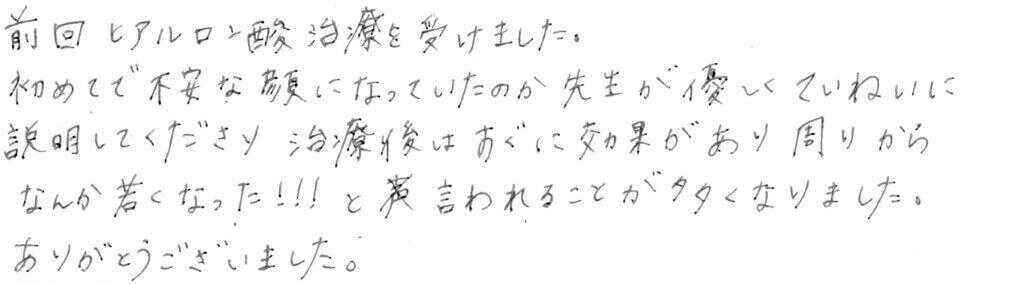 前回 ヒアルロン酸 治療を 受けました。
初めてで 不安な 顔になっていたのか 先生が 優しく ていねいに
説明してくださり 治療後は すぐに 効果が あり 周りから
なんか 若く なった!!! と 言われることが 多くなりました。
ありがとうございました。